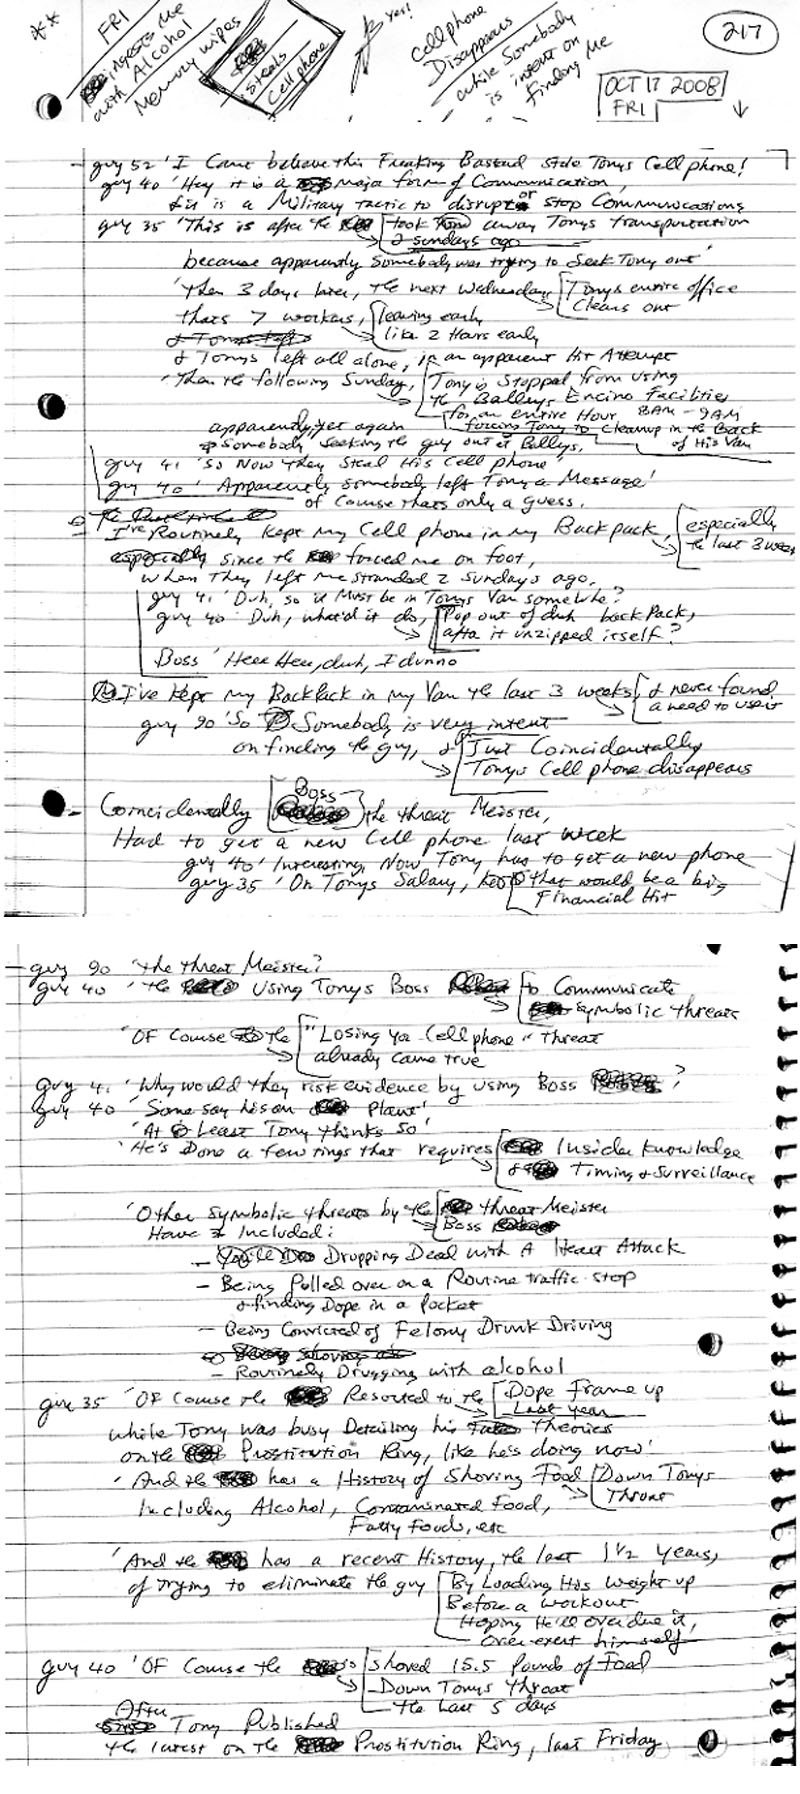 **
FRI
ingests me
with Alcohol
Memory wipes
steals
Cell phone
yes!
cell phone
Disappears
while Somebody
is intent on
finding me
217
OCT 17 2008
FRI
- guy 52 'I Cant believe this Freaking Bastard stole Tonys Cell phone!
guy 40 'Hey it is a maja form of Communication,
& it is a Military tactic to disrupt or stop Communications
guy 35 'This is after the took away Tonys transportation
2 sundays ago
because apparently Somebody was trying to Seek Tony out'
'Then 3 days later, the next Wednesday, Tonys entire office
Clears out
thats 7 workers, leaving early
like 2 Hours early
& Tonys left all alone, in an apparent Hit Attempt
'Then the following Sunday, Tony is Stopped from using
the Balleys Encino Facilities
for an entire Hour 8AM - 9AM
apparently yet again forcing Tony to cleanup in the Back
Somebody seeking the guy out at Balleys, of His Van
guy 41 'So Now they Steal His Cell phone'
guy 40 'Apparently somebody left Tony a Message'
of Course thats only a guess.
I've Routinely kept my Cell phone in my Backpack, especially
the last 3 weeks
especially since the forced me on foot,
when They left me stranded 2 sundays ago.
guy 41 'Duh, so it Must be in Tonys Van somewhe?
guy 40 'Duh, what'd it do, Pop out of duh backPack,
afta it unzipped itself?
Boss 'Here Here, duh, I dunno
I've Kept my BackPack in my Van the last 3 weeks, & never found
a need to use it
guy 90 'So Somebody is very intent
on finding the guy, & Just Coincidentally
Tonys Cell phone disappears
- Coincidentally Boss the threat Meister,
Had to get a new Cell phone last week
guy 40 'Interesting, Now Tony has to get a new phone
guy 35 'On Tonys Salary, that would be a big
Financial Hit
- guy 90 'the threat Meister?
guy 40 'the Using Tonys Boss to Communicate
symbolic threats
'OF Course the "Losing Yor Cell phone" threat
already came true
guy 41 'Why would they risk evidence by using Boss ?
guy 40 'Some say hes an Plant'
'At Least Tony thinks so'
'He's Done a few tings that requires Inside knowledge
& Timing & Surveillance
'Other Symbolic threats by the threat Meister
Boss
Have Included:
- Dropping Dead with A Heart Attack
- Being Pulled over on a Routine traffic stop
& finding Dope in a Pocket
- Being Convicted of Felony Drunk Driving
- Routinely Drugging with alcohol
guy 35 'OF Course the Resorted to the Dope Frame up
Last year
while Tony was busy Detailing his theories
on the Prostitution Ring, like he's doing now'
'And the has a History of Shoving Food Down Tonys
Throat
Including Alcohol, Contaminated Food,
Fatty foods, etc
'And the has a recent History, the last 1½ years,
of trying to eliminate the guy By Loading His Weight up
Before a workout
Hoping He'll overdue it,
over exert himself
guy 40 'OF Course the Shoved 15.5 Pounds of Food
Down Tonys throat
the Last 5 days
After
Tony Published
the latest on the Prostitution Ring, last Friday